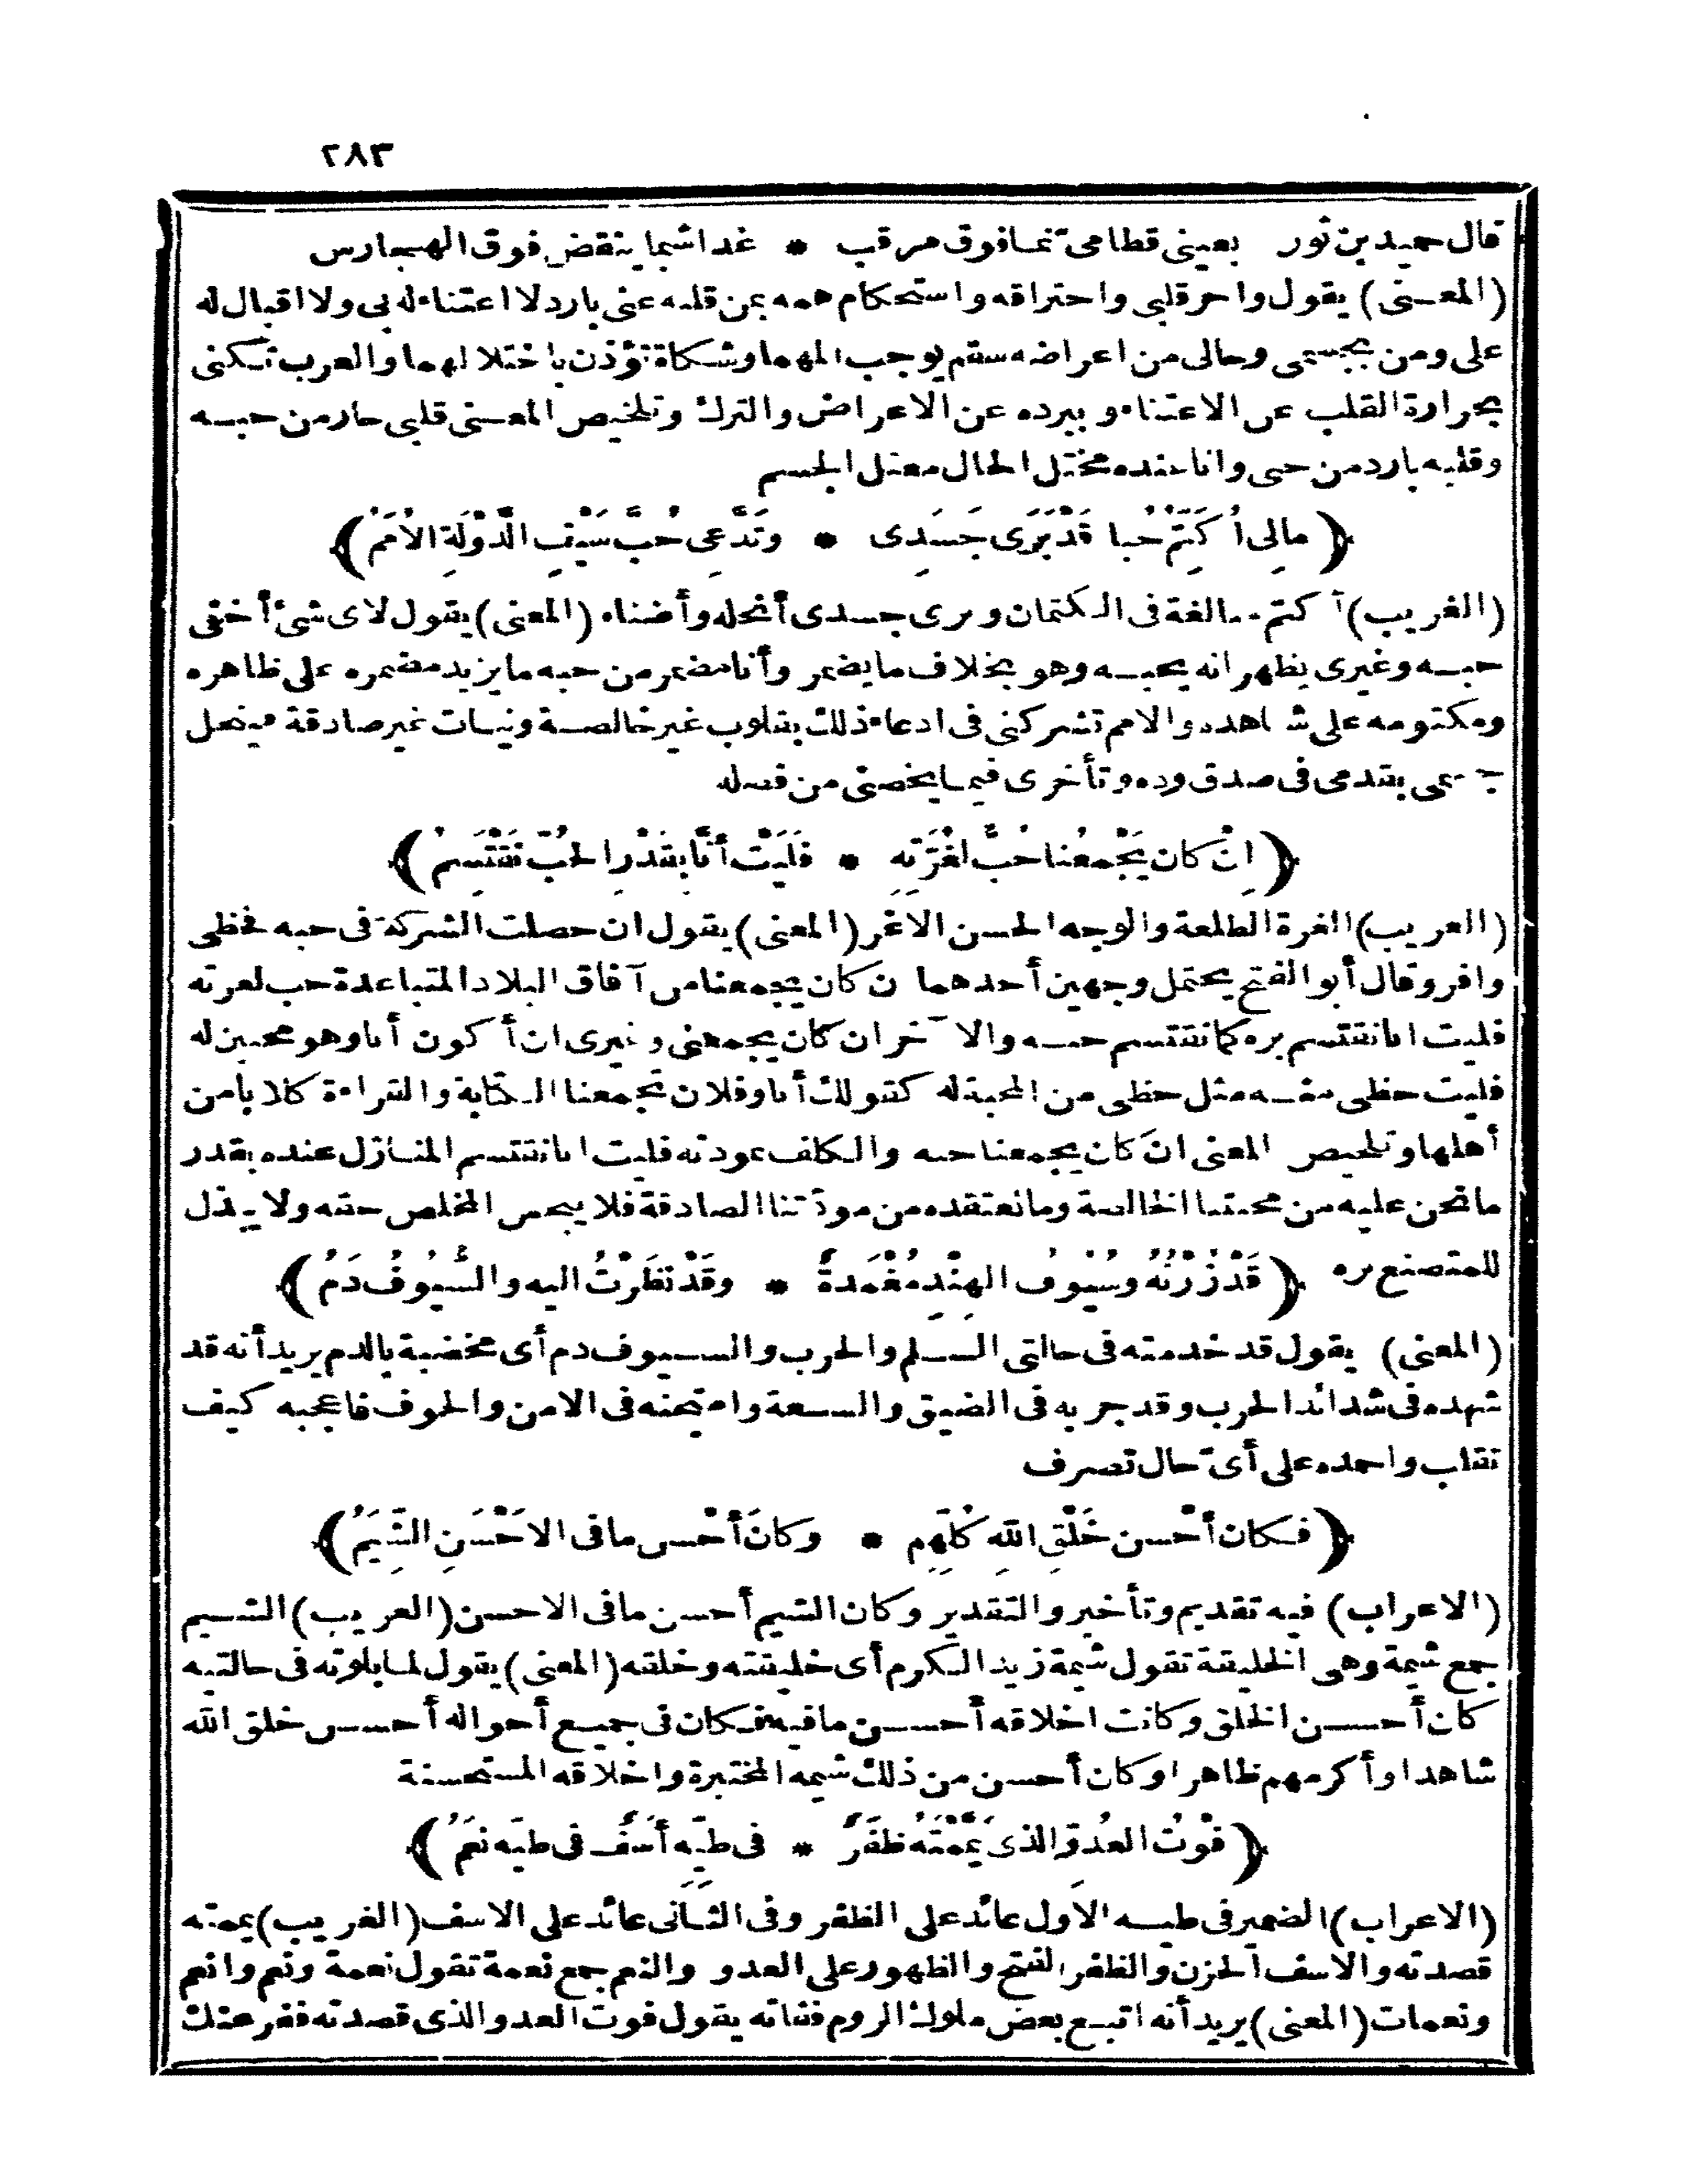 ٢٨٣
قال حميد بن ثور بعيني قطامى نما فوق مرقب * غدا شبما ينقض فوق الهجارس
(المعنى) يقول واحر قلبى واحتراقه واستحكام همه بمن قلبه عنى بارد لا اعتناء له بى ولا اقبال له
على ومن بجسمى وحالى من اعراضه سقم يوجب المهما وشكاة تؤذن باختلالهما والعرب تكنى
بحرارة القلب عن الاعتناء وببرده عن الاعراض والترك وتلخيص المعنى قلبى حار من حبه
وقلبه بارد من حبى وانا عنده مختل الحال معتل الجسم
﴿ مالِى أُكَتِّمُ حُبا قَدْ بَرَى جَسَدِى * وتَدَّعِى حُبَّ سَيْفِ الدَّوْلَةِ الأُمَمُ ﴾
(الغريب) أكتم مبالغة فى الكتمان وبرى جسدى أنحله وأضناه (المعنى) يقول لاى شئ أخفى
حبه وغيرى يظهر انه يحبه وهو بخلاف ما يضمر وأنا مضمر من حبه ما يزيد مضمره على ظاهره
ومكتومه على شاهده والامم تشركنى فى ادعاء ذلك بقلوب غير خالصة ونيات غير صادقة فينحل
جسمى بتقدمى فى صدق وده وتأخرى فيما يخصنى من فضله
﴿ اِنْ كان يَجْمعُنا حُبٌّ لغُرَّتِهِ * فَلَيْتَ أنَّا بقَدْرِ الحُبِّ نَقْتَسِمُ ﴾
(الغريب) الغرة الطلعة والوجه الحسن الاغر (المعنى) يقول ان حصلت الشركة فى حبه فحظى
وافر وقال أبو الفتح يحتمل وجهين أحدهما ان كان يجمعنا من آفاق البلاد المتباعدة حب لغرته
فليت انا نقتسم بره كما نقتسم حبه والآخر ان كان يجمعنى وغيرى ان أكون أنا وهو محبين له
فليت حظى منه مثل حظى من المحبة له كقولك أنا وفلان تجمعنا الكتابة والقراءة كلانا من
أهلها وتلخيص المعنى ان كان يجمعنا حبه والكلف بمودته فليت انا نقتسم المنازل عنده بقدر
ما نحن عليه من محبتنا الخالصة وما نعتقده من مودّتنا الصادقة فلا يبخس المخلص حقه ولا يبذل
للمتصنع بره ﴿ قَدْ زُرْتُهُ وسُيُوفُ الهِنْدِ مُغْمَدةٌ * وقَدْ نظَرْتُ اليه والسُّيُوفُ دَمُ ﴾
(المعنى) يقول قد خدمته فى حالتى السلم والحرب والسيوف دم أى مخضبة بالدم يريد أنه قد
شهده فى شدائد الحرب وقد جربه فى الضيق والسعة وامتحنه فى الامن والخوف فاعجبه كيف
تقلب واحمده على أىّ حال تصرف
﴿ فكان أحْسن خَلْقِ اللّهِ كُلِّهِم * وكانَ أحْسن مافى الاَحْسَنِ الشِّيَمُ ﴾
(الاعراب) فيه تقديم وتأخير والتقدير وكان الشيم أحسن مافى الاحسن (الغريب) الشيم
جمع شيمة وهى الخليقة تقول شيمة زيد الكرم أى خليقته وخلقه (المعنى) يقول لما بلوته فى حالتيه
كان أحسن الخلق وكانت اخلاقه أحسن ما فيه فكان فى جميع أحواله أحسن خلق الله
شاهدا وأكرمهم ظاهرا وكان أحسن من ذلك شيمه المختبرة واخلاقه المستحسنة
﴿ فوْتُ العدُوِّ الذى يَمَّمْتَهُ ظفَرٌ * فى طيِّهِ أسَفٌ فى طيّه نِعَمُ ﴾
(الاعراب) الضمير فى طيه الاول عائد على الظفر وفى الثانى عائد على الاسف (الغريب) يممته
قصدته والاسف الحزن والظفر الفتح والظهور على العدو والنعم جمع نعمة تقول نعمة ونعم وانعم
ونعمات (المعنى) يريد أنه اتبع بعض ملوك الروم ففاته يقول فوت العدو الذى قصدته ففر عنك